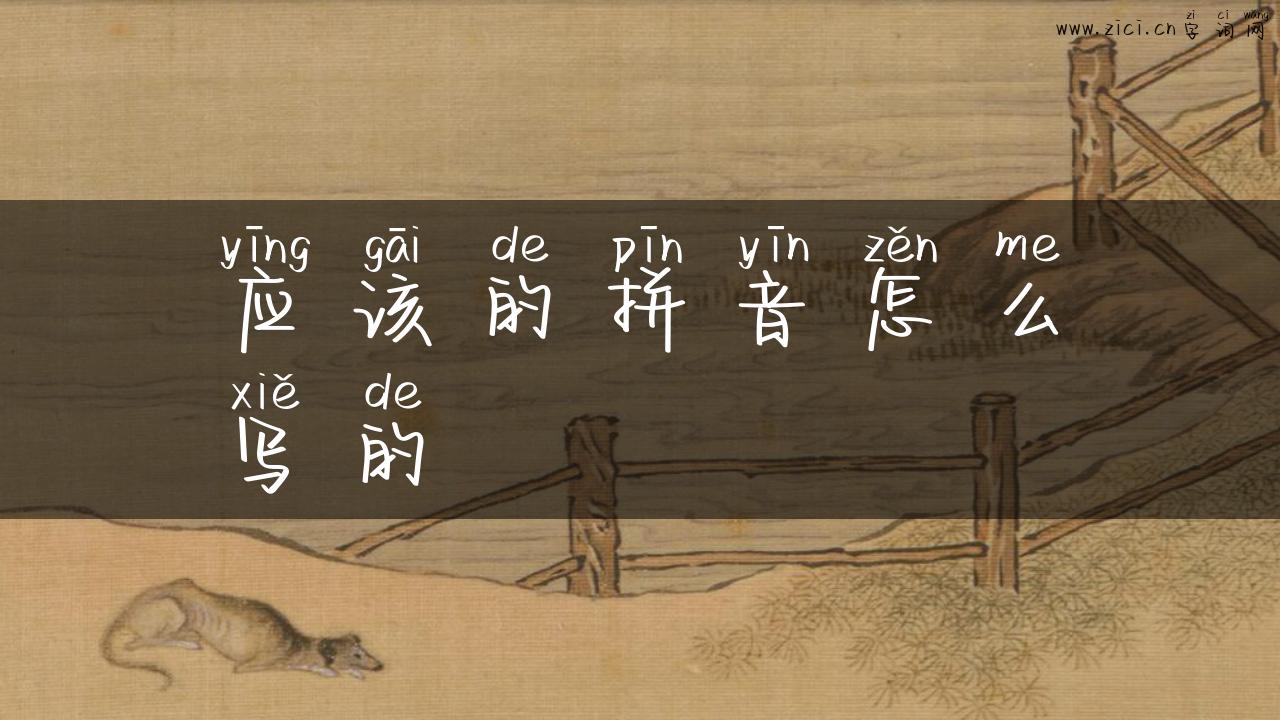 zì cí wǎng
www.zici.cn 字词网
yīng gāi de pīn yīn zěn me
应该的拼音怎么
xiě de
写的